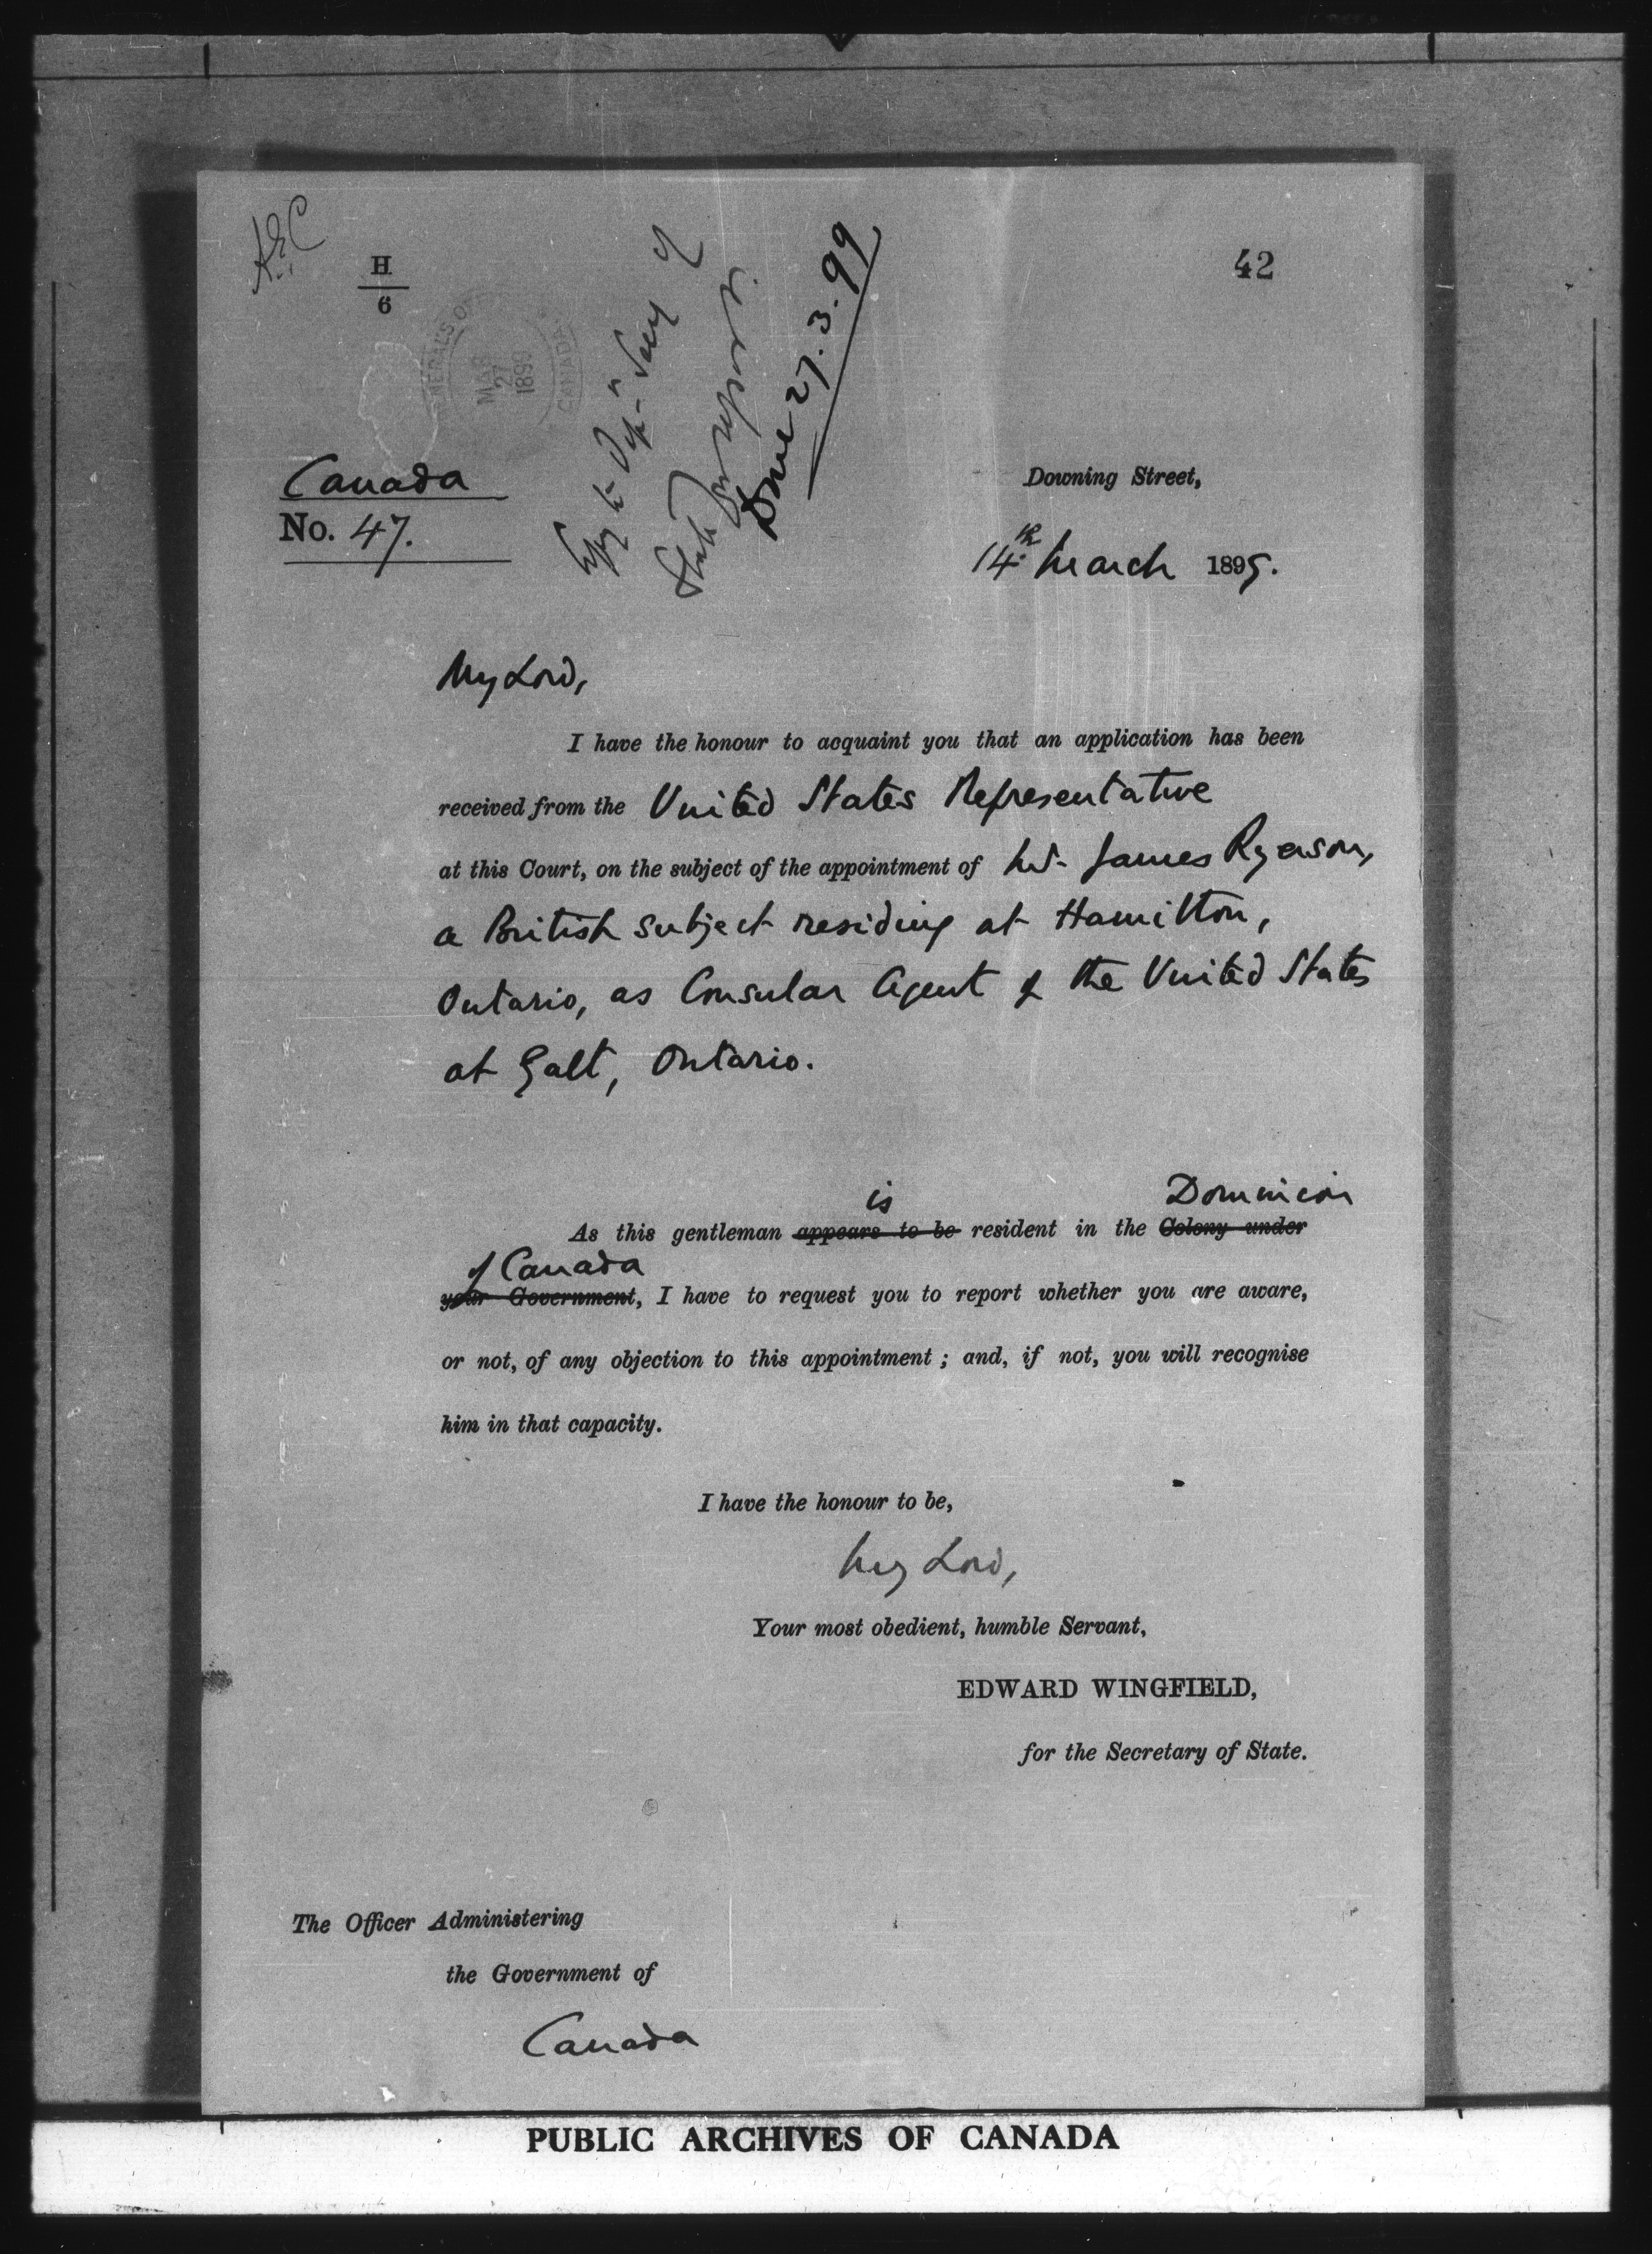 H
6
42
GENERAL'S O
MAR
27
1899
CANADA
Copy to Dep. Secy of
State for report.
Done 27.3.99
Canada
No. 47.
Downing Street,
14th March 1899.
My Lord,
I have the honour to acquaint you that an application has been
received from the United States Representative
at this Court, on the subject of the appointment of Mr. James Ryerson,
a British subject residing at Hamilton,
Ontario, as Consular Agent of the United States
at Galt, Ontario.
is Dominion
As this gentleman appears to be resident in the Colony under
of Canada
your Government, I have to request you to report whether you are aware,
or not, of any objection to this appointment; and, if not, you will recognise
him in that capacity.
I have the honour to be,
My Lord,
Your most obedient, humble Servant,
EDWARD WINGFIELD,
for the Secretary of State.
The Officer Administering
the Government of
Canada
PUBLIC ARCHIVES OF CANADA